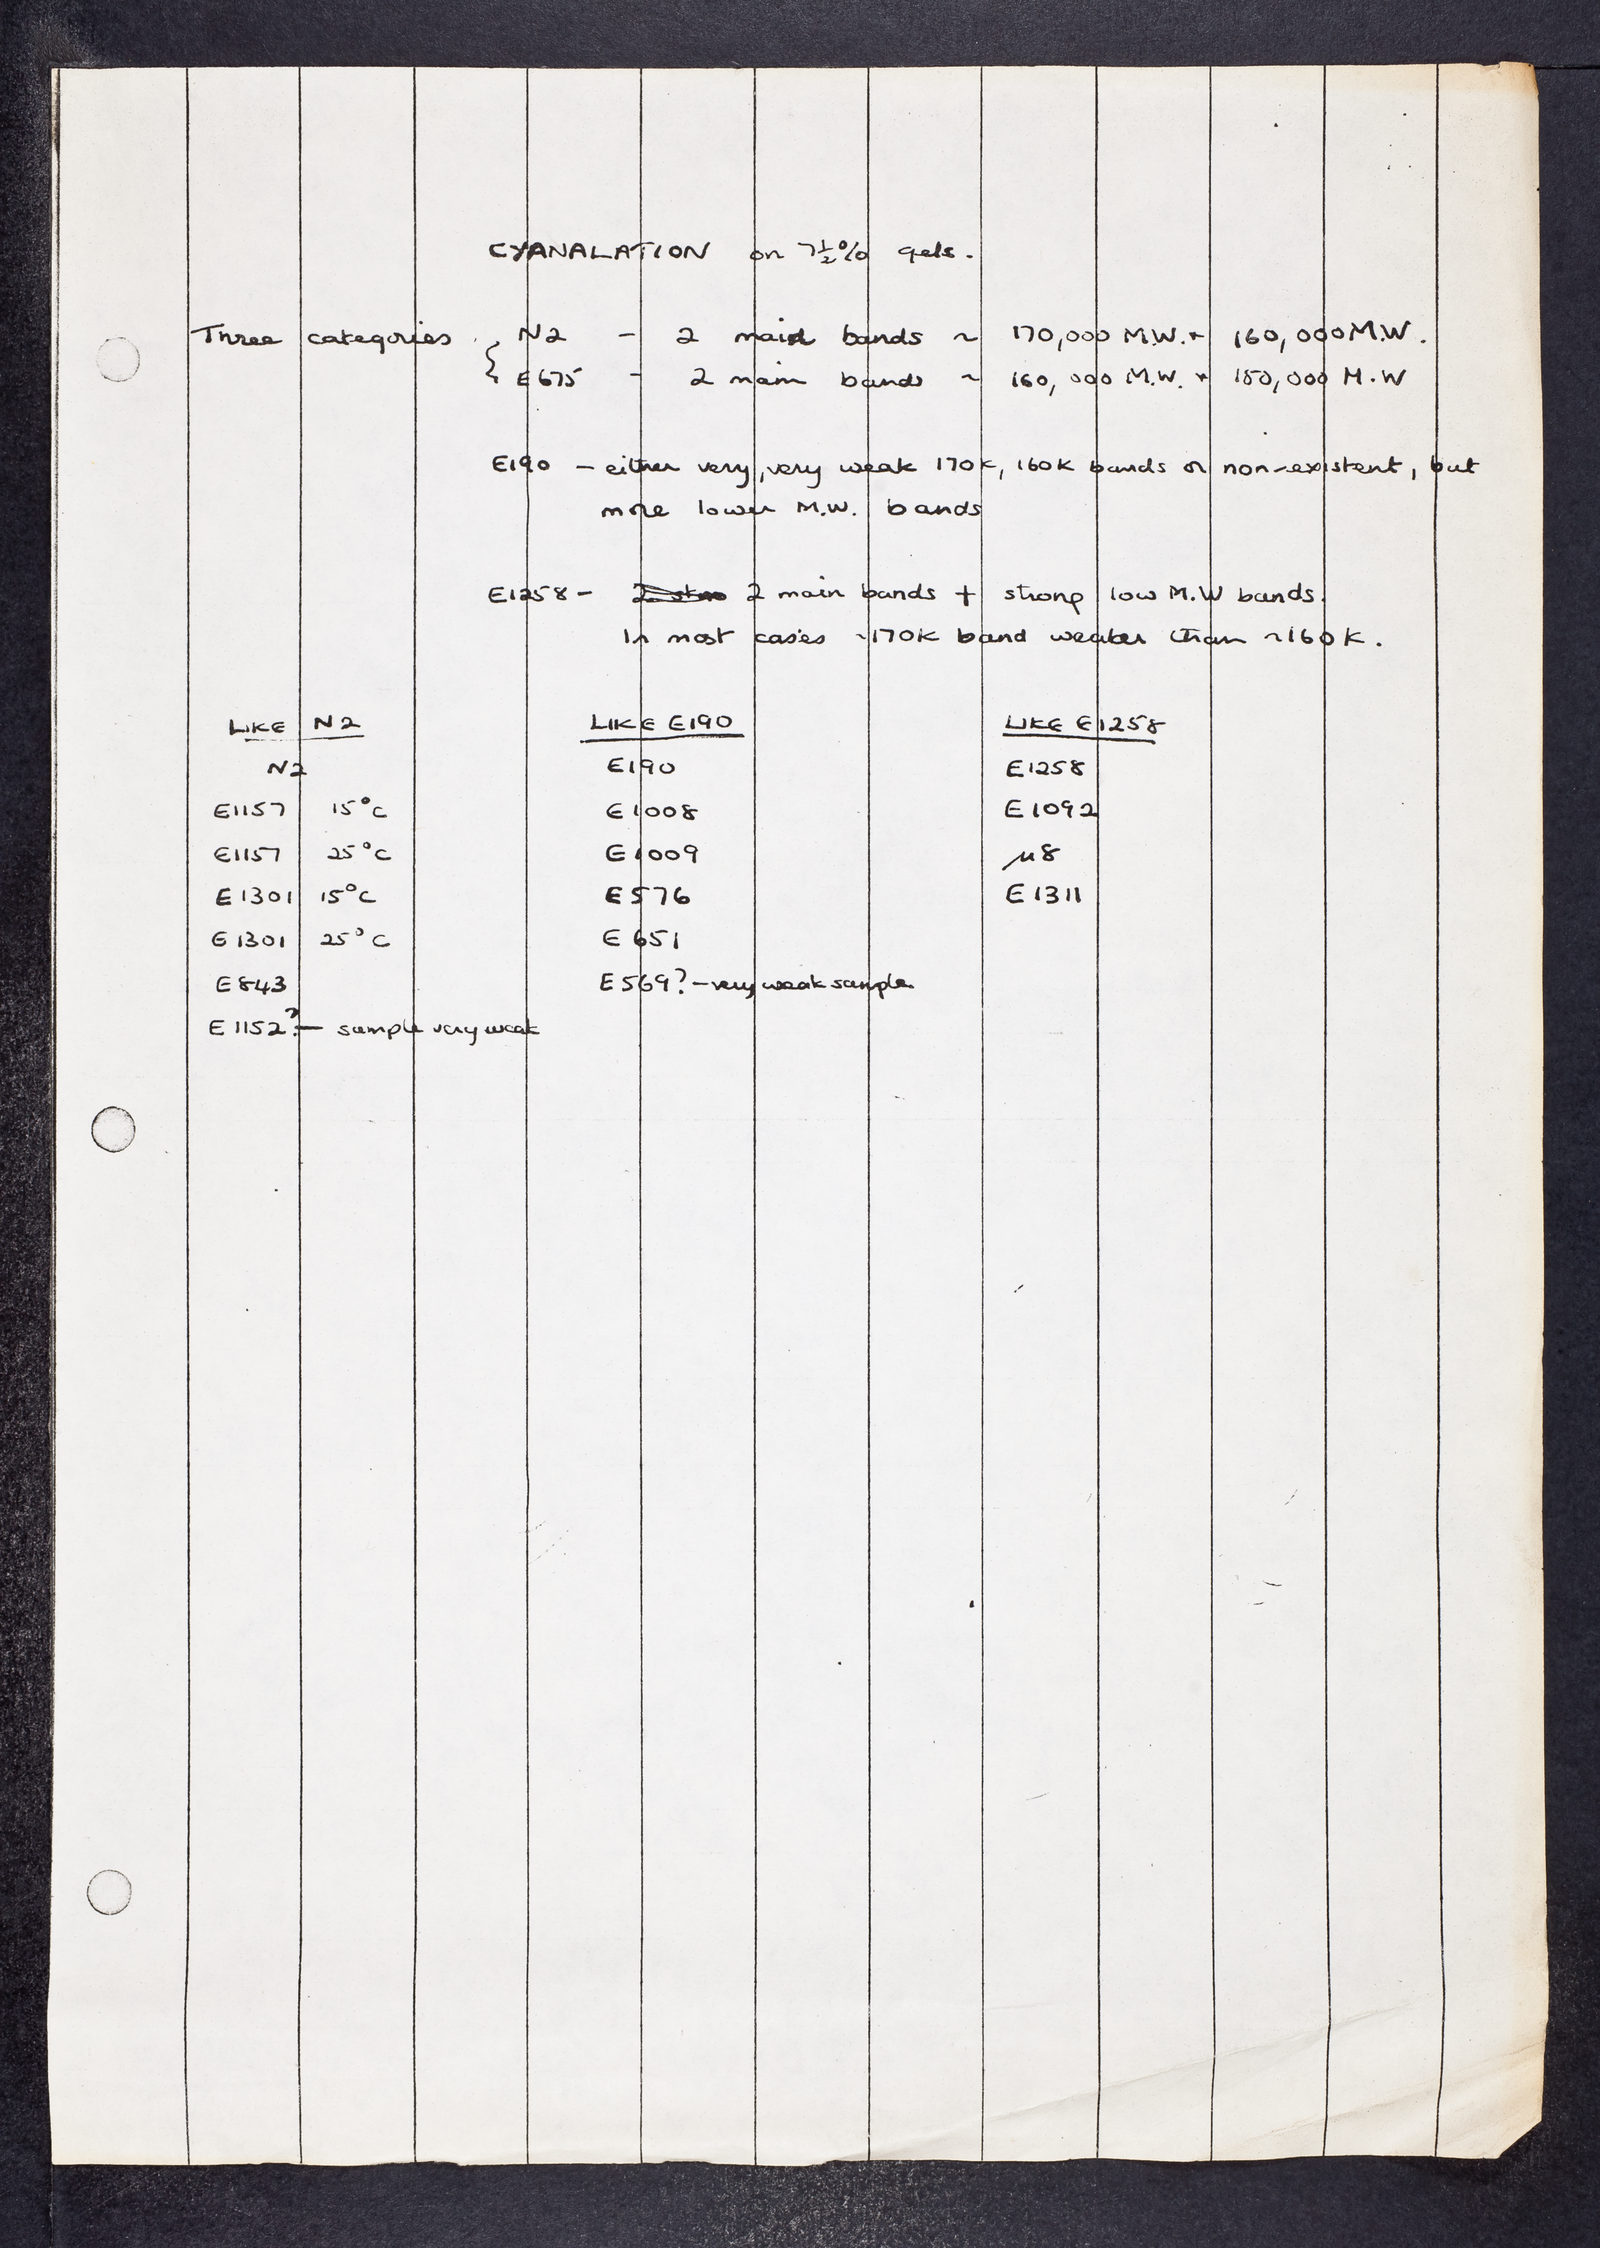 CYANALATION on 7½% gels.
Three categories { N2 - 2 main bands ~ 170,000 M.W. + 160,000 M.W.
E675 - 2 main bands ~ 160,000 M.W. + 150,000 M.W
E190 - either very, very weak 170K, 160K bands or non-existent, but
more lower M.W. bands
E1258 - 2 main bands + strong low M.W bands.
In most cases ~170K band weaker than ~160K.
LIKE N2 LIKE E190 LIKE E1258
N2 E190 E1258
E1157 15°C E1008 E1092
E1157 25°C E1009 µ8
E1301 15°C E576 E1311
E1301 25°C E651
E843 E569? - very weak sample
E1152? - sample very weak